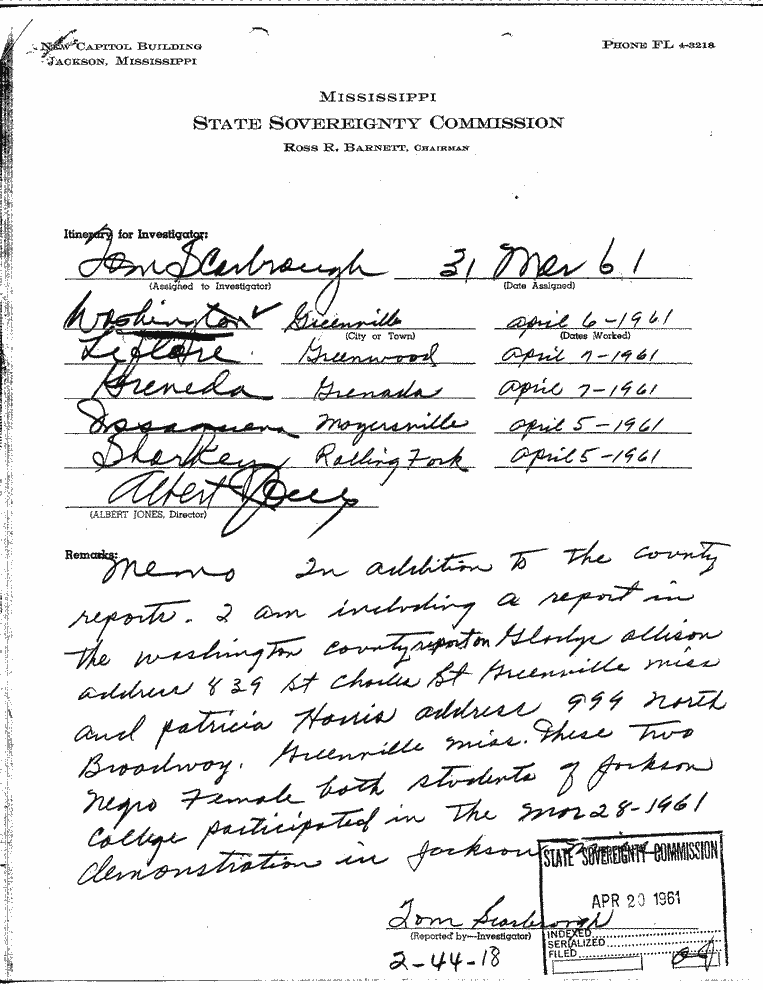 New Capitol Building
Jackson, Mississippi
Phone FL 4-3218
Mississippi
State Sovereignty Commission
Ross R. Barnett, Chairman
Itinerary for Investigator:
Tom Scarbrough 31 Mar 61
(Assigned to Investigator) (Date Assigned)
Washington ✓ Greenville April 6-1961
(City or Town) (Dates Worked)
Leflore Greenwood April 7-1961
Greneda Grenada April 7-1961
Issaquena Mayersville April 5-1961
Sharkey Rolling Fork April 5-1961
Albert Jones
(ALBERT JONES, Director)
Remarks:
Memo In addition to the county
reports. I am including a report in
the Washington county report on Gladys Allison
address 839 St Charles St Greenville Miss
and Patricia Harris address 999 North
Broadway. Greenville Miss. These two
Negro Female both students of Jackson
College participated in the Mar 28-1961
demonstration in Jackson
STATE SOVEREIGNTY COMMISSION
APR 20 1961
Tom Scarbrough
(Reported by—Investigator)
INDEXED
SERIALIZED
FILED
2-44-18